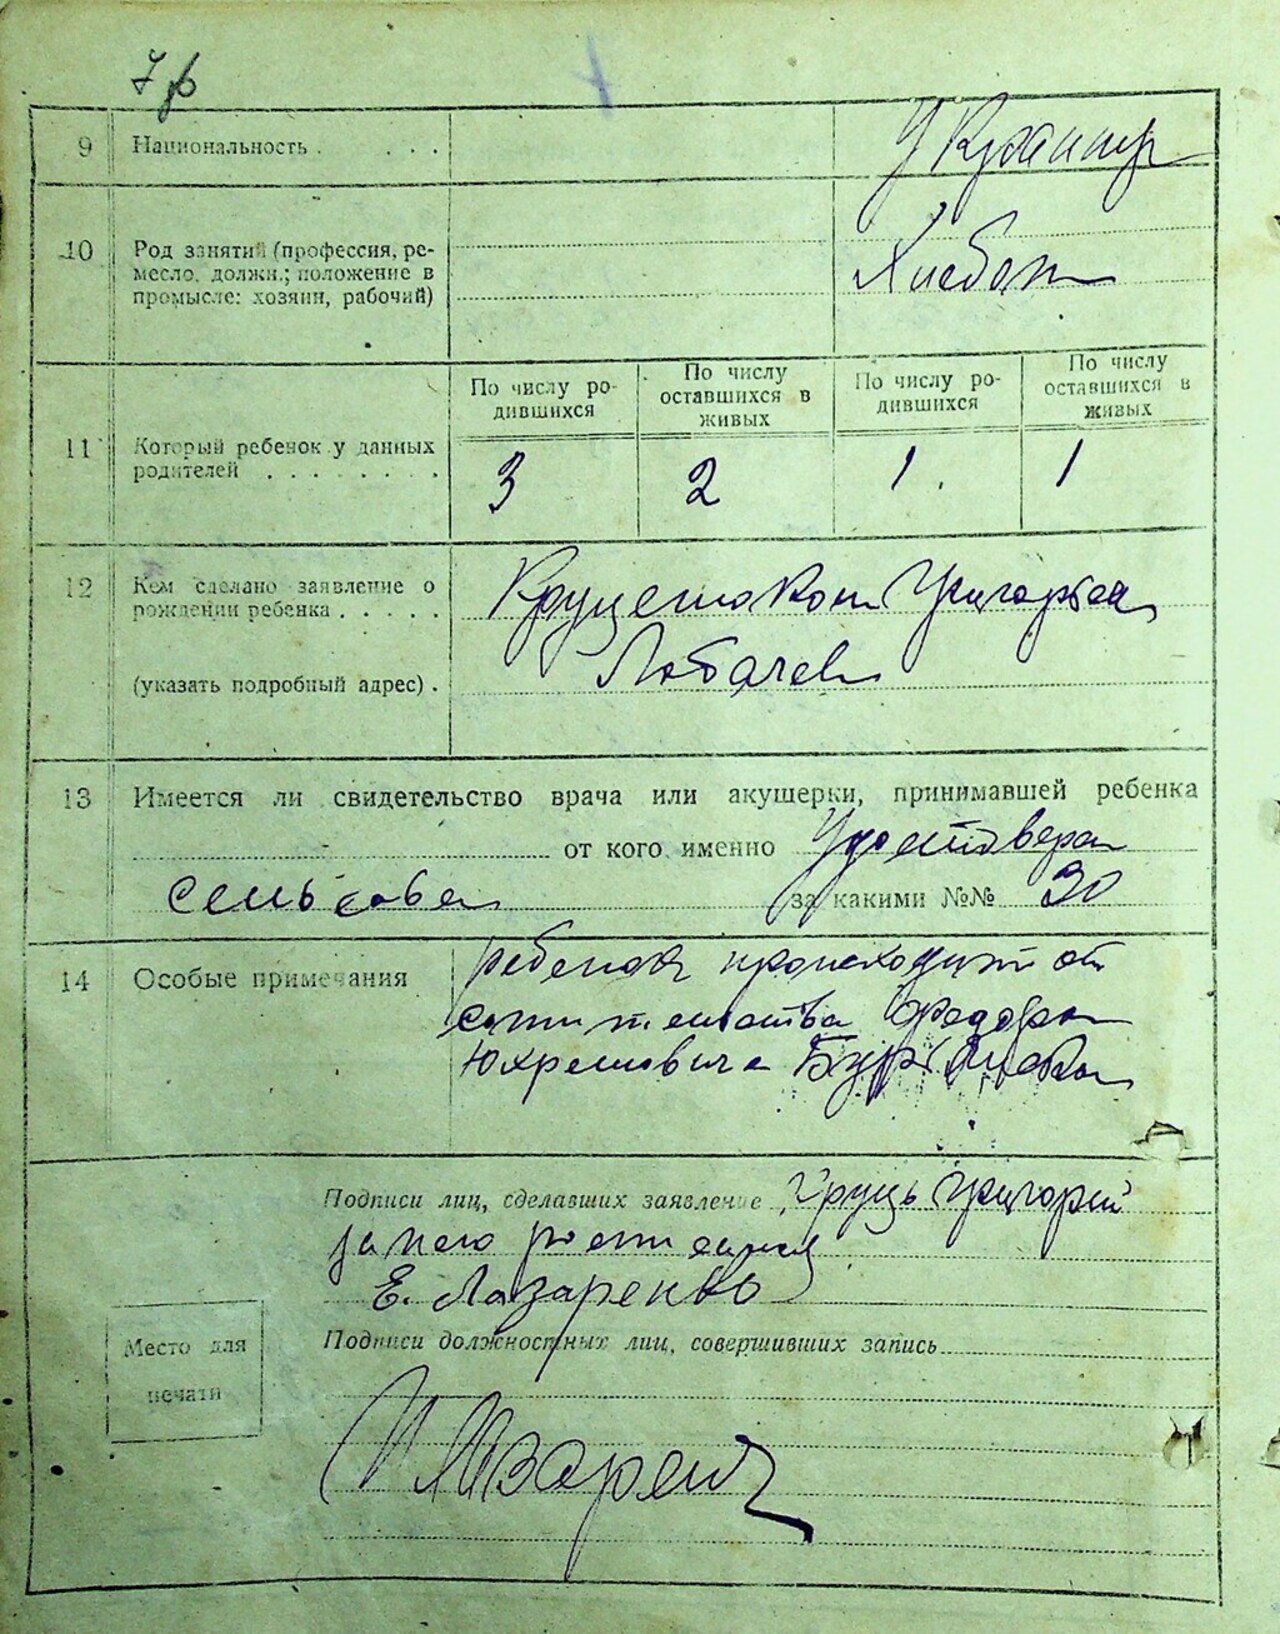 9 Национальность . . . . Украинц
10 Род занятий (профессия, ре-
месло, должн.; положение в
промысле: хозяин, рабочий)
Хлебоп
11 Который ребенок у данных
родителей . . . . . . . .
По числу ро-
дившихся
По числу
оставшихся в
живых
По числу ро-
дившихся
По числу
оставшихся в
живых
3 2 1 1
12 Кем сделано заявление о
рождении ребенка . . . . .
(указать подробный адрес) .
13 Имеется ли свидетельство врача или акушерки, принимавшей ребенка
от кого именно Удостовер
сельсове за какими №№ 30
14 Особые примечания
ребенок происходит от
Федора
Юхремовича
Подписи лиц, сделавших заявление Григорий
за него
Е. Лазаренко
Подписи должностных лиц, совершивших запись
Место для
печати
Лазарен